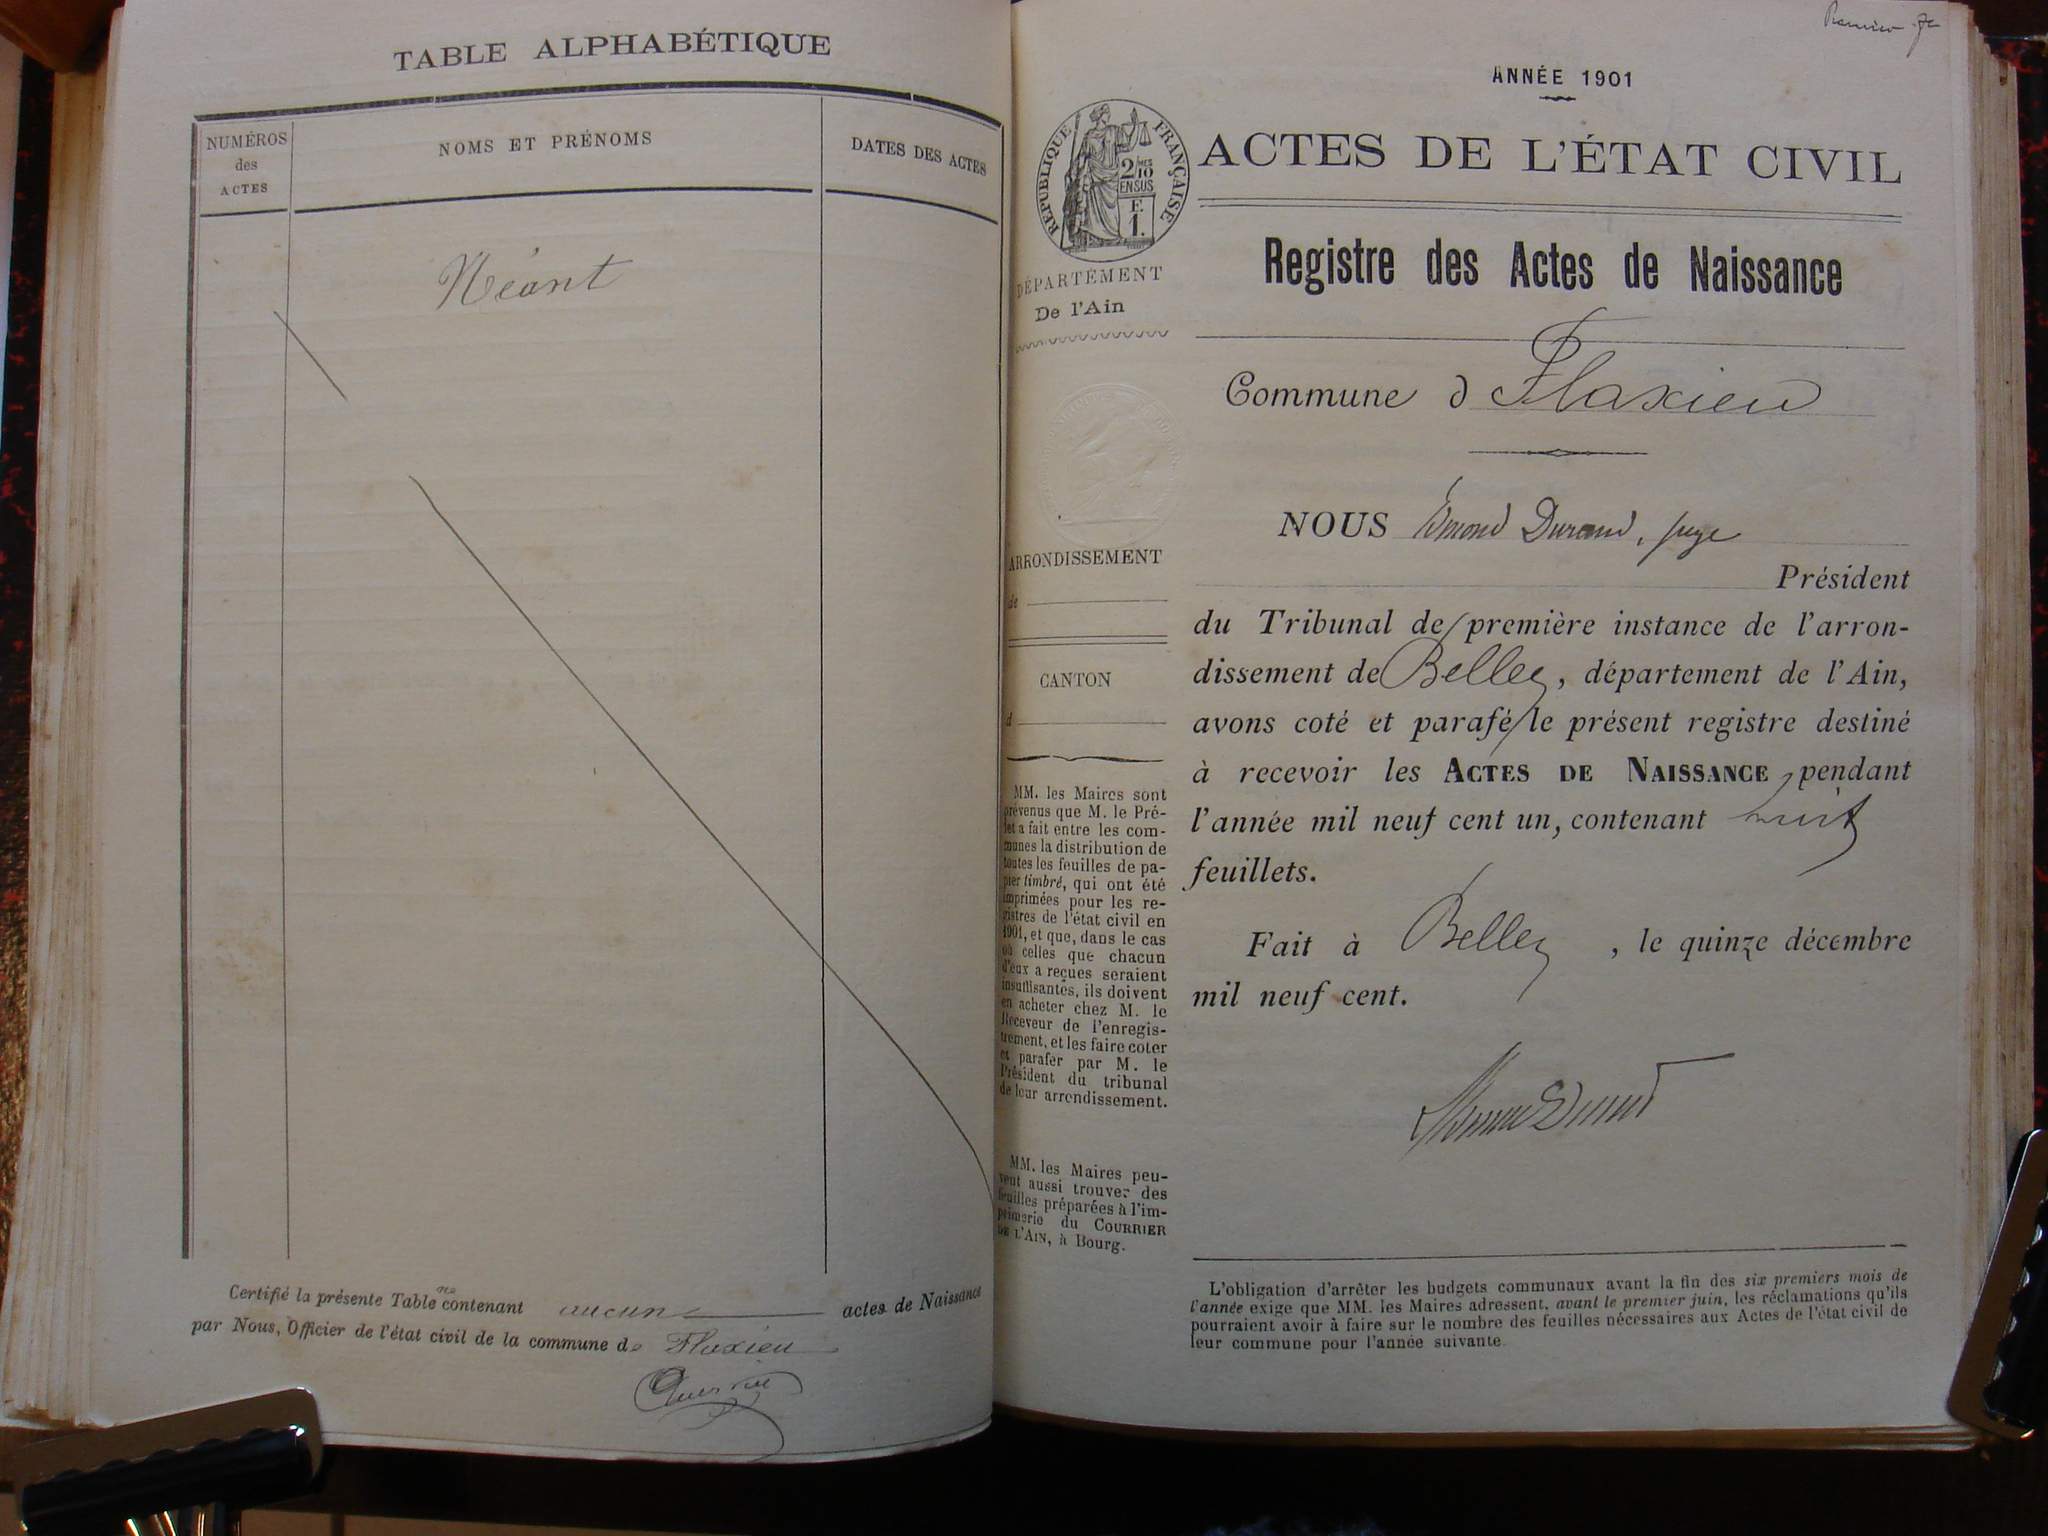 TABLE ALPHABÉTIQUE
NUMÉROS
des
ACTES
NOMS ET PRÉNOMS
DATES DES ACTES
Néant
Certifié la présente Table ne contenant aucun actes de Naissance
par Nous, Officier de l'état civil de la commune de Flaxieu
Premier
ANNÉE 1901
RÉPUBLIQUE FRANÇAISE
2/10
EN SUS
E
1.
ACTES DE L'ÉTAT CIVIL
Registre des Actes de Naissance
DÉPARTEMENT
De l'Ain
Commune d Flaxieu
ARRONDISSEMENT
de
CANTON
d
MM. les Maires sont
prévenus que M. le Pré-
fet a fait entre les com-
munes la distribution de
toutes les feuilles de pa-
pier timbré, qui ont été
imprimées pour les re-
gistres de l'état civil en
1901, et que, dans le cas
où celles que chacun
d'eux a reçues seraient
insuffisantes, ils doivent
en acheter chez M. le
Receveur de l'enregis-
trement, et les faire coter
et parafer par M. le
Président du tribunal
de leur arrondissement.
MM. les Maires peu-
vent aussi trouver des
feuilles préparées à l'im-
primerie du COURRIER
DE L'AIN, à Bourg.
NOUS Edmond Durand, juge
Président
du Tribunal de première instance de l'arron-
dissement de Belley, département de l'Ain,
avons coté et parafé le présent registre destiné
à recevoir les ACTES DE NAISSANCE pendant
l'année mil neuf cent un, contenant huit
feuillets.
Fait à Belley, le quinze décembre
mil neuf cent.
L'obligation d'arrêter les budgets communaux avant la fin des six premiers mois de
l'année exige que MM. les Maires adressent, avant le premier juin, les réclamations qu'ils
pourraient avoir à faire sur le nombre des feuilles nécessaires aux Actes de l'état civil de
leur commune pour l'année suivante.